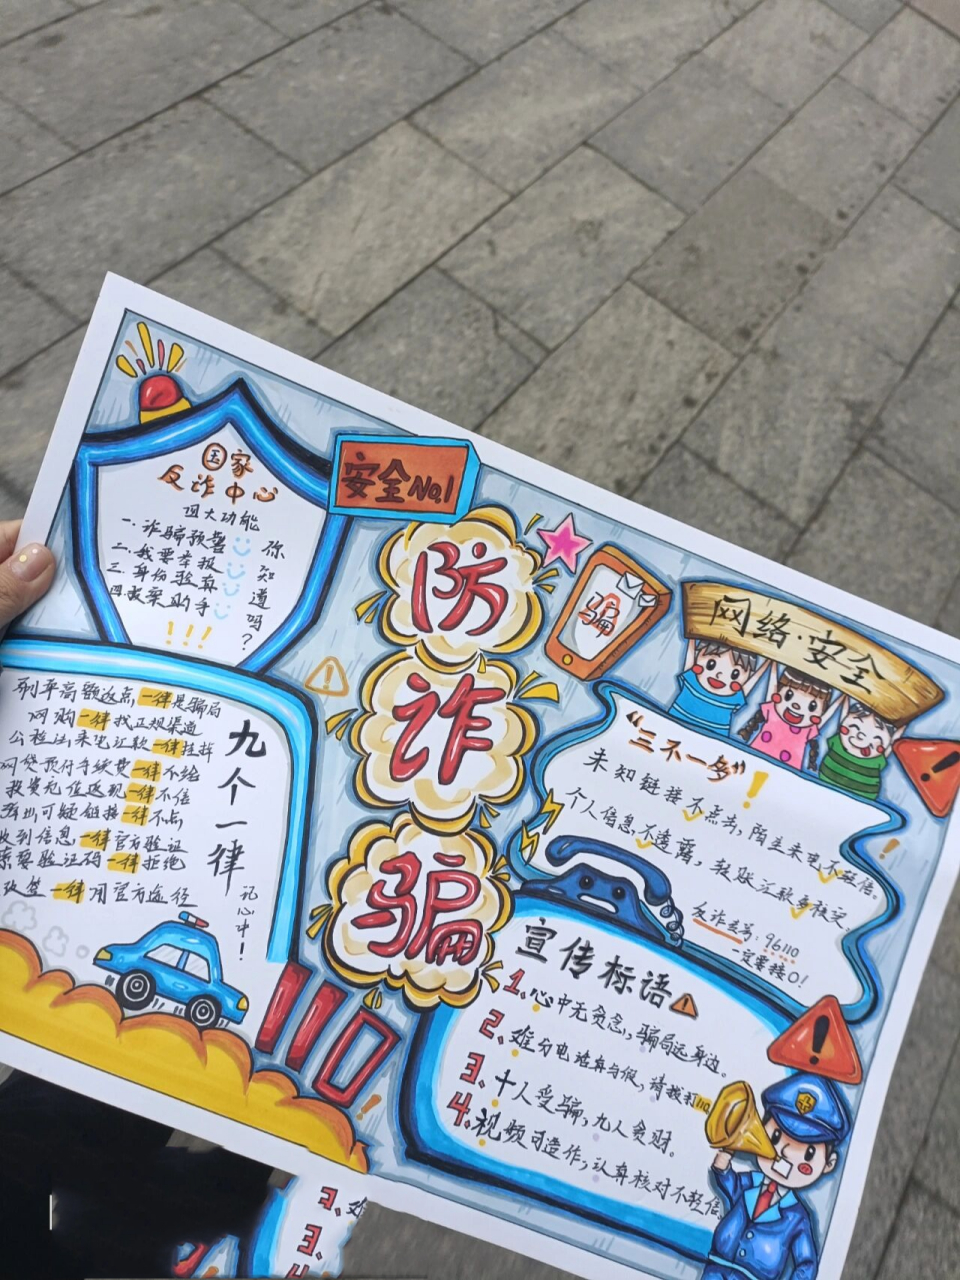 国家
反诈中心
四大功能
一.诈骗预警
二.我要举报
三.身份验真
四.报案助手
你知道吗?
!!!
安全No.1
防
诈
骗
骗
网络·安全
“三不一多”!
未知链接不点击,陌生来电不轻信。
个人信息不透露,转账汇款多核实。
反诈专号:96110
一定要接O!
九个一律
记心中!
刷单高额返点,一律是骗局
网购一律找正规渠道
公检法来电汇款一律挂掉
网贷预付手续费一律不给
投资充值返现一律不信
可疑链接一律不点
收到信息一律官方验证
索要验证码一律拒绝
一律用官方途径
110
宣传标语
1.心中无贪念,骗局远身边。
2.难分电话真与假,请拨打110
3.十人受骗,九人贪财。
4.视频可造作,认真核对不轻信。
2.
3.